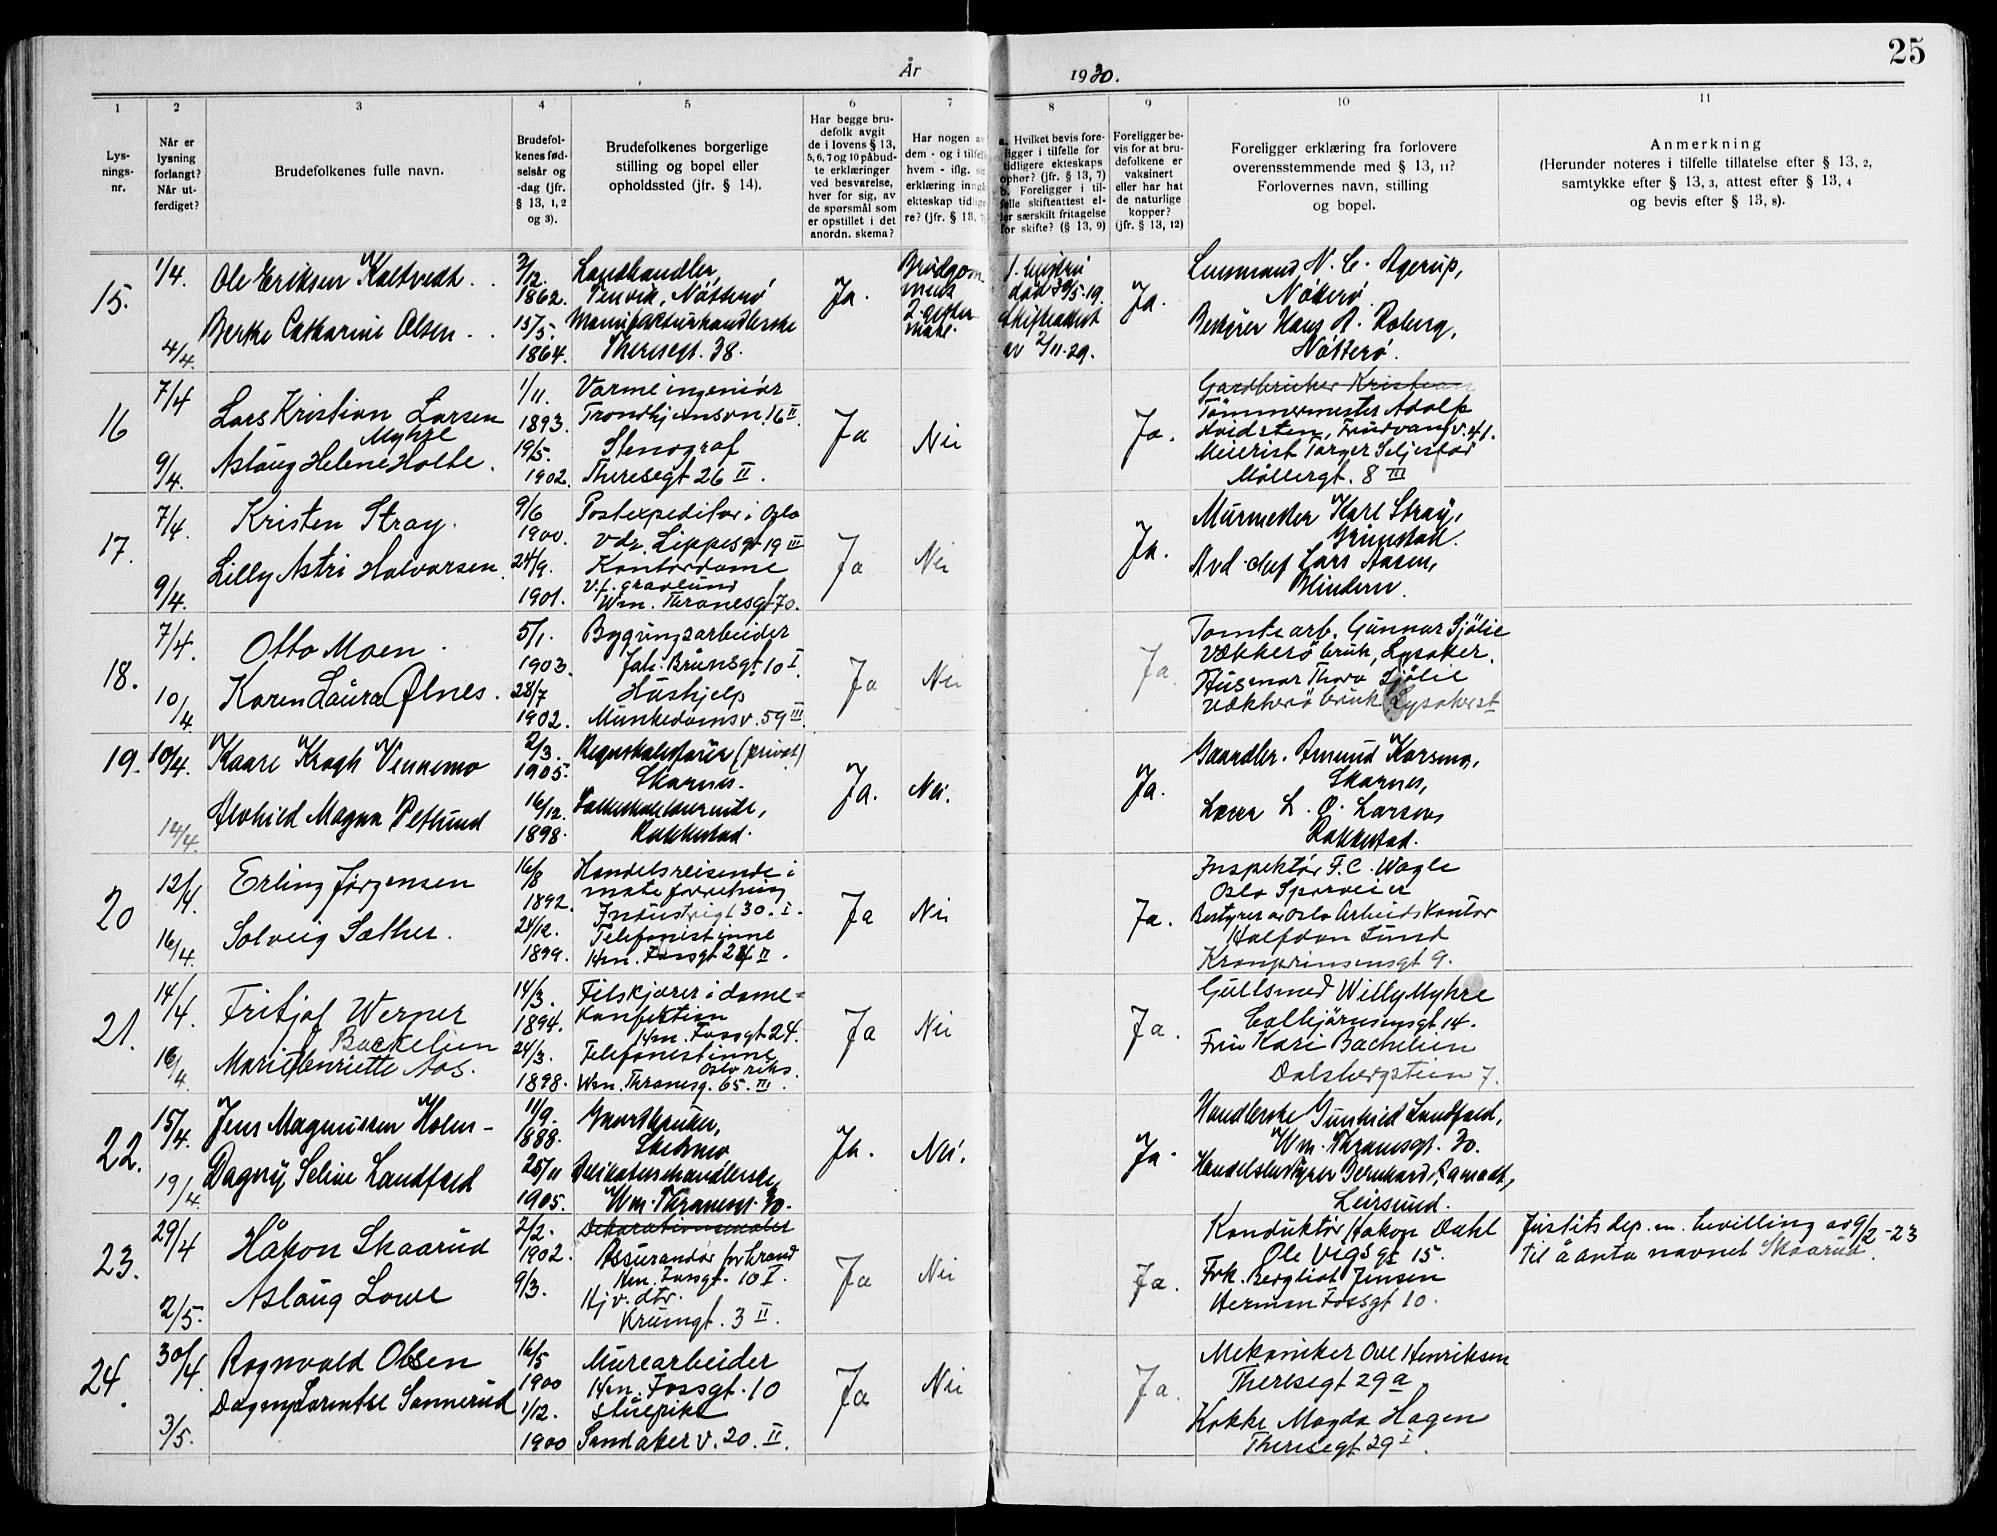 25
År 1930.
1 2 3 4 5 6 7 8 9 10 11
Lys-
nings-
nr.
Når er
lysning
forlangt?
Når ut-
ferdiget?
Brudefolkenes fulle navn.
Brudefol-
kenes fød-
selsår og
-dag (jfr.
§ 13, 1, 2
og 3).
Brudefolkenes borgerlige
stilling og bopel eller
opholdssted (jfr. § 14).
Har begge bru-
defolk avgit
de i lovens § 13,
5, 6, 7 og 10 påbud-
te erklæringer
ved besvarelse,
hver for sig, av
de spørsmål som
er opstillet i det
anordn. skema?
Har nogen av
dem - og i tilfelle
hvem - iflg.
erklæring inngå
ekteskap tidlige-
re? (jfr. § 13, 7
a. Hvilket bevis fore-
ligger i tilfelle for
tidligere ekteskaps
ophør? (jfr. § 13, 7)
b. Foreligger i til-
felle skifteattest el-
ler særskilt fritagelse
for skifte? (§ 13, 9)
Foreligger be-
vis for at bru-
defolkene er
vaksinert
eller har hat
de naturlige
kopper?
(jfr. § 13, 12)
Foreligger erklæring fra forlovere
overensstemmende med § 13, 11?
Forlovernes navn, stilling
og bopel.
Anmerkning
(Herunder noteres i tilfelle tillatelse efter § 13, 2,
samtykke efter § 13, 3, attest efter § 13, 4
og bevis efter § 13, 8).
15.
1/4.
4/4.
Ole Eriksen Kaltvedt.
Berte Catharine Olsen
3/12.
1862.
15/5.
1864.
Landhandler,
Tenvik, Nötterö
Manufakturhandlerske
Theresegt. 38.
Ja.
Brudgom-
mens
2. gifter-
maal.
1. hustru
död 30/5-19.
Skifteattest
av 2/11-29.
Ja.
Lensmand N. C. Agerup,
Nötterö.
Bestyrer Hans R. Roberg,
Nötterö.
16
7/4
9/4.
Lars Kristian Larsen
Myhre
Aslaug Helene Holte.
1/11.
1893.
19/5.
1902.
Varmeingeniör
Trondhjemsvn. 16 II.
Stenograf
Theresegt 26 II.
Ja
Nei
Ja.
Gardbruker Kristian
Tömmermester Adolf
Hvidsten, Furuvang v. 41.
Meierist Torger Seljesför
Möllergt. 8 III
17.
7/4.
9/4.
Kristen Stray.
Lilly Astri Halvorsen.
9/6
1900.
24/9.
1901.
Postexpeditør i Oslo
vdr. Lippesgt 19 III
Kontordame
V.f. gravlund
Wm. Thranesgt 70.
Ja
Nei
Ja.
Murmester Karl Stray,
Grimstad.
Avd. chef Lars Aasen,
Blindern.
18.
7/4.
10/4
Otto Moen.
Karen Laura Ølnes.
5/1.
1903.
28/7
1902.
Bygningsarbeider
Joh. Brunsgt. 10 I.
Hushjelp
Munkedamsv. 59 III.
Ja
Nei
Ja.
Tomtearb. Gunnar Sjölie
Vækkerö bruk, Lysaker.
Husmor Thora Sjölie
Vækkerö bruk Lysaker st
19.
10/4.
14/4.
Kaare Krogh Vennemo
Alvhild Magna Vestlund
2/3.
1905.
16/12.
1898.
Regnskapsförer (privat)
Skarnes.
Folkeskolelærerinde,
Rakkestad.
Ja.
Nei.
Ja.
Gaardbr. Amund Korsmo,
Skarnes,
Lærer L. O. Larsen
Rakkestad.
20
12/4.
16/4.
Erling Jørgensen
Solveig Sæther.
16/8
1892.
24/12.
1899.
Handelsreisende i
moteforretning
Industrigt 30. I.
Telefonistinne
Hm. Fossgt 24 II.
Ja
Nei
Ja.
Inspektör F. C. Wagle
Oslo Sporveier
Bestyrer av Oslo Arbeidskontor
Halfdan Lund
Kronprinsensgt 9.
21.
14/4.
16/4.
Fritjof Werner
Backelien
Marie Henriette Aas.
14/3.
1894.
24/3.
1898.
Tilskjærer i dame-
konfektion
Hm. Fossgt 24.
Telefonistinne
Oslo riks.
Wm. Thranesg. 65. III.
Ja
Nei
Ja.
Gullsmed Willy Myhre
Colbjörnsensgt 14.
Fru Kari Bachelien
Dalsbergstien 7.
22.
15/4.
19/4.
Jens Magnussen Holm-
Dagny Seline Landfald
11/9.
1888.
25/11
1905.
Gaardbruker,
Skedsmo
Delikatessehandlerske,
Wm. Thranesgt. 30.
Ja.
Nei.
Ja.
Handlerske Gunhild Landfald,
Wm. Thranesgt. 30.
Handelsbestyrer Bernhard Ramstad,
Leirsund.
23.
29/4
2/5.
Håkon Skaarud
Aslaug Lowe
2/2.
1902.
9/3.
Dekorationsmaler
Assurandör for Brand
Hm. Fossgt. 10 I.
Hjv. dtr.
Krumgt. 3 II.
Ja
Nei
Ja.
Konduktör Hakon Dahl
Ole Vigs gt 15.
Frk. Bergliot Jensen
Herman Fossgt 10.
Justitsdep. m. bevilling av 9/2-23
til å anta navnet Skaarud.
24.
30/4.
3/5.
Ragnvald Olsen
Dagny Dorothea Sannerud
16/5
1900
1/12.
1900
Murearbeider
Hm. Fossgt. 10
Stuepike
Sandaker v. 20. II.
Ja
Nei
Ja.
Mekaniker Ove Henriksen
Theresegt 29a
Kokke Magda Hagen
Theresegt 29 I.